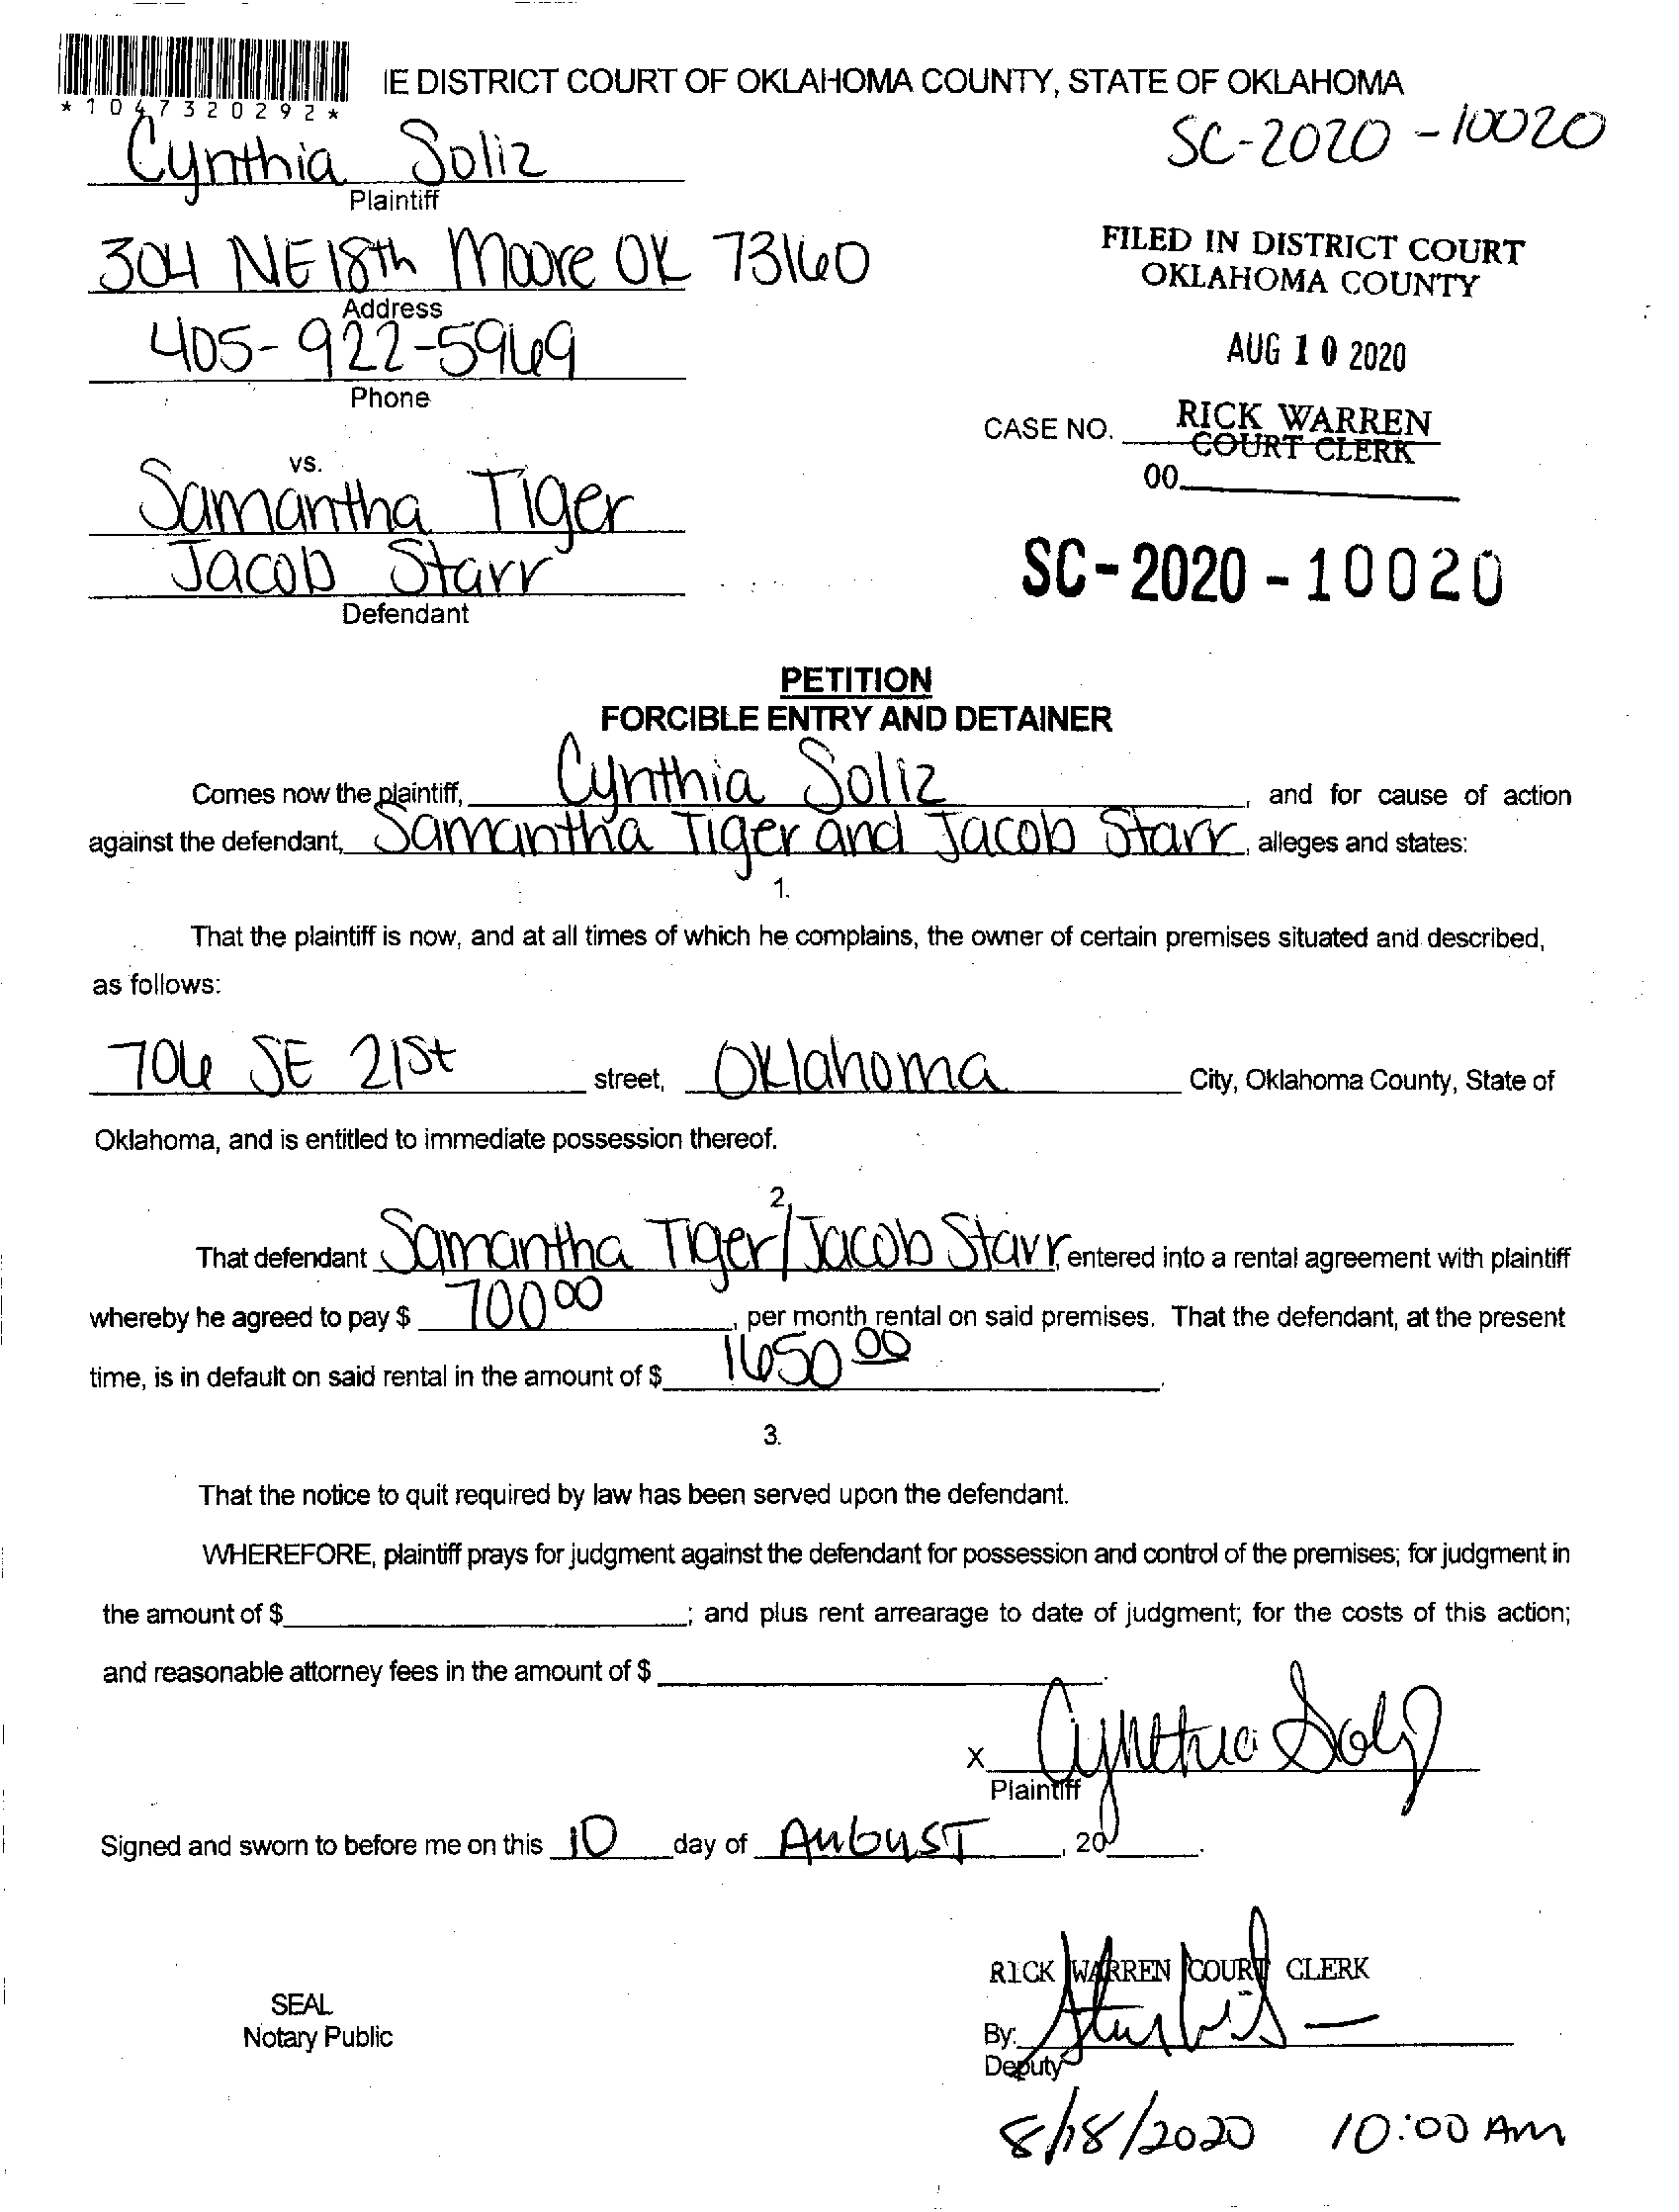 IE DISTRICT COURT OF OKLAHOMA COUNTY, STATE OF OKLAHOMA
*1047320292*
SC-2020-10020
Cynthia Soliz
Plaintiff
304 NE 18th Moore OK 73160
Address
FILED IN DISTRICT COURT
OKLAHOMA COUNTY
405-922-5969
Phone
AUG 10 2020
CASE NO. RICK WARREN
COURT CLERK
00
vs.
Samantha Tiger
Jacob Starr
Defendant
SC-2020-10020
PETITION
FORCIBLE ENTRY AND DETAINER
Comes now the plaintiff, Cynthia Soliz, and for cause of action
against the defendant, Samantha Tiger and Jacob Starr, alleges and states:
1.
That the plaintiff is now, and at all times of which he complains, the owner of certain premises situated and described,
as follows:
706 SE 21st street, Oklahoma City, Oklahoma County, State of
Oklahoma, and is entitled to immediate possession thereof.
2.
That defendant Samantha Tiger/Jacob Starr, entered into a rental agreement with plaintiff
whereby he agreed to pay $ 700 00, per month rental on said premises. That the defendant, at the present
time, is in default on said rental in the amount of $ 1650 00.
3.
That the notice to quit required by law has been served upon the defendant.
WHEREFORE, plaintiff prays for judgment against the defendant for possession and control of the premises; for judgment in
the amount of $ ; and plus rent arrearage to date of judgment; for the costs of this action;
and reasonable attorney fees in the amount of $ .
x Cynthia Soliz
Plaintiff
Signed and sworn to before me on this 10 day of AUGUST, 20 .
RICK WARREN COURT CLERK
SEAL
Notary Public
By:
Deputy
8/18/2020 10:00 AM